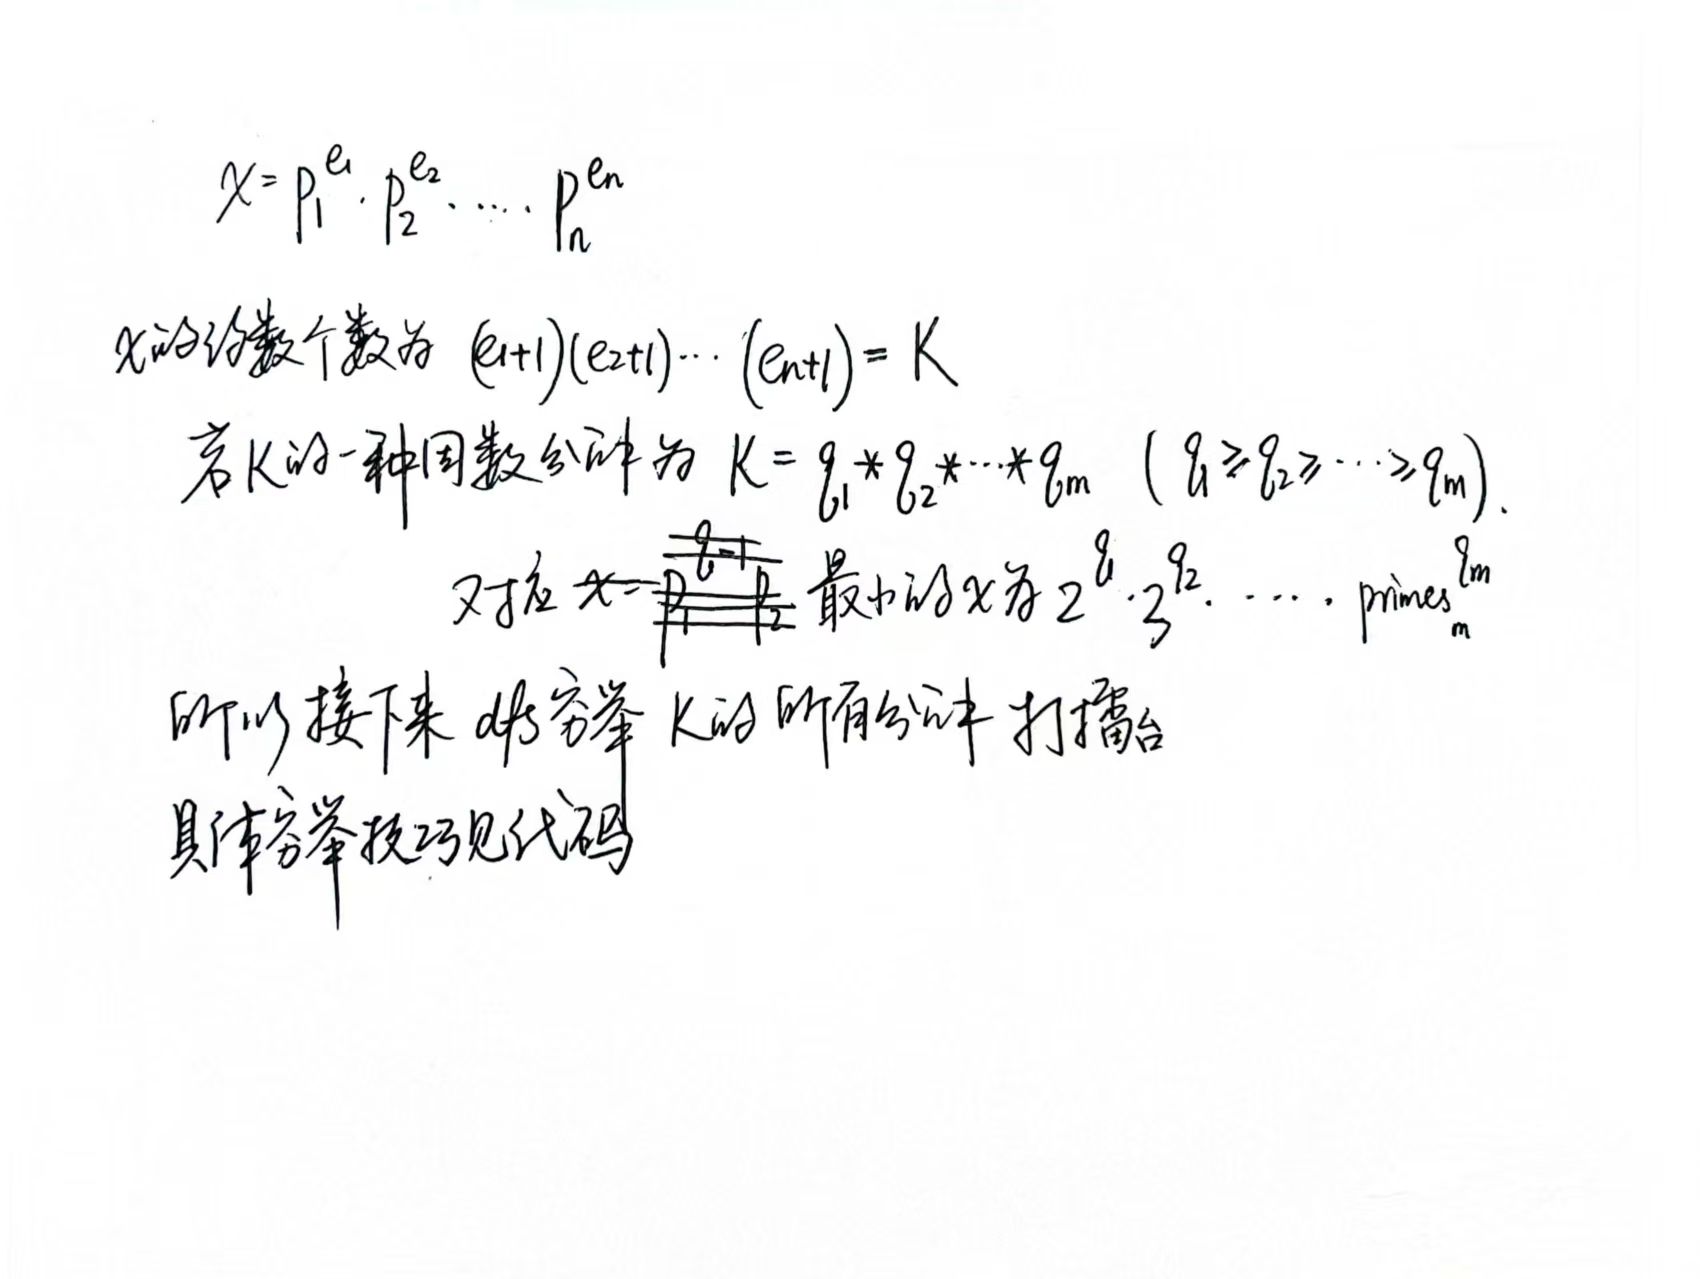 x = p₁^e₁ · p₂^e₂ · ····· pₙ^eₙ
x的约数个数为 (e₁+1)(e₂+1)···(eₙ+1) = K
若K的一种因数分解为 K = q₁*q₂*···*qₘ (q₁≥q₂≥···≥qₘ).
对应 最小的x为 2^q₁ · 3^q₂ · ···· · primesₘ^qₘ
所以接下来 dfs穷举 K的所有分解 打擂台
具体穷举技巧见代码